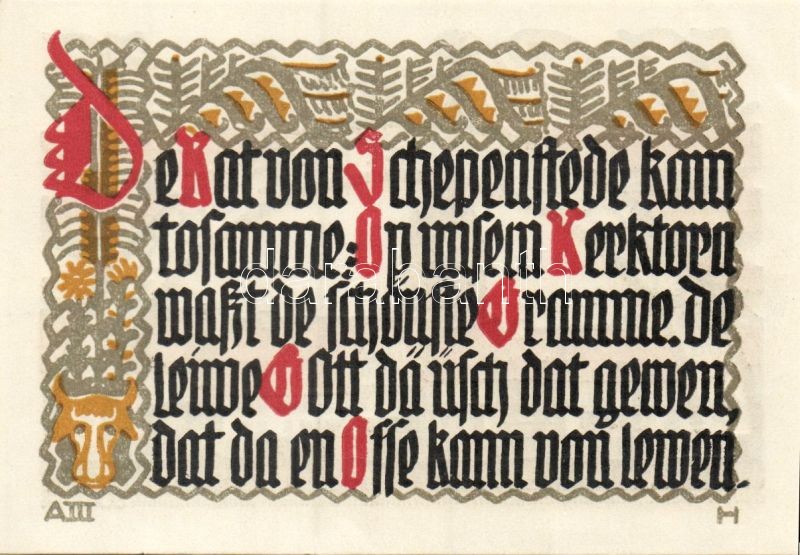 De Rat von Schepenstede kam
tosamme: On unsem Kerktorn
waßt de schönste Gramme. de
leiwe Gott dä üsch dat gewen,
dat da en Osse kann von lewen.
darabanth
A III
H